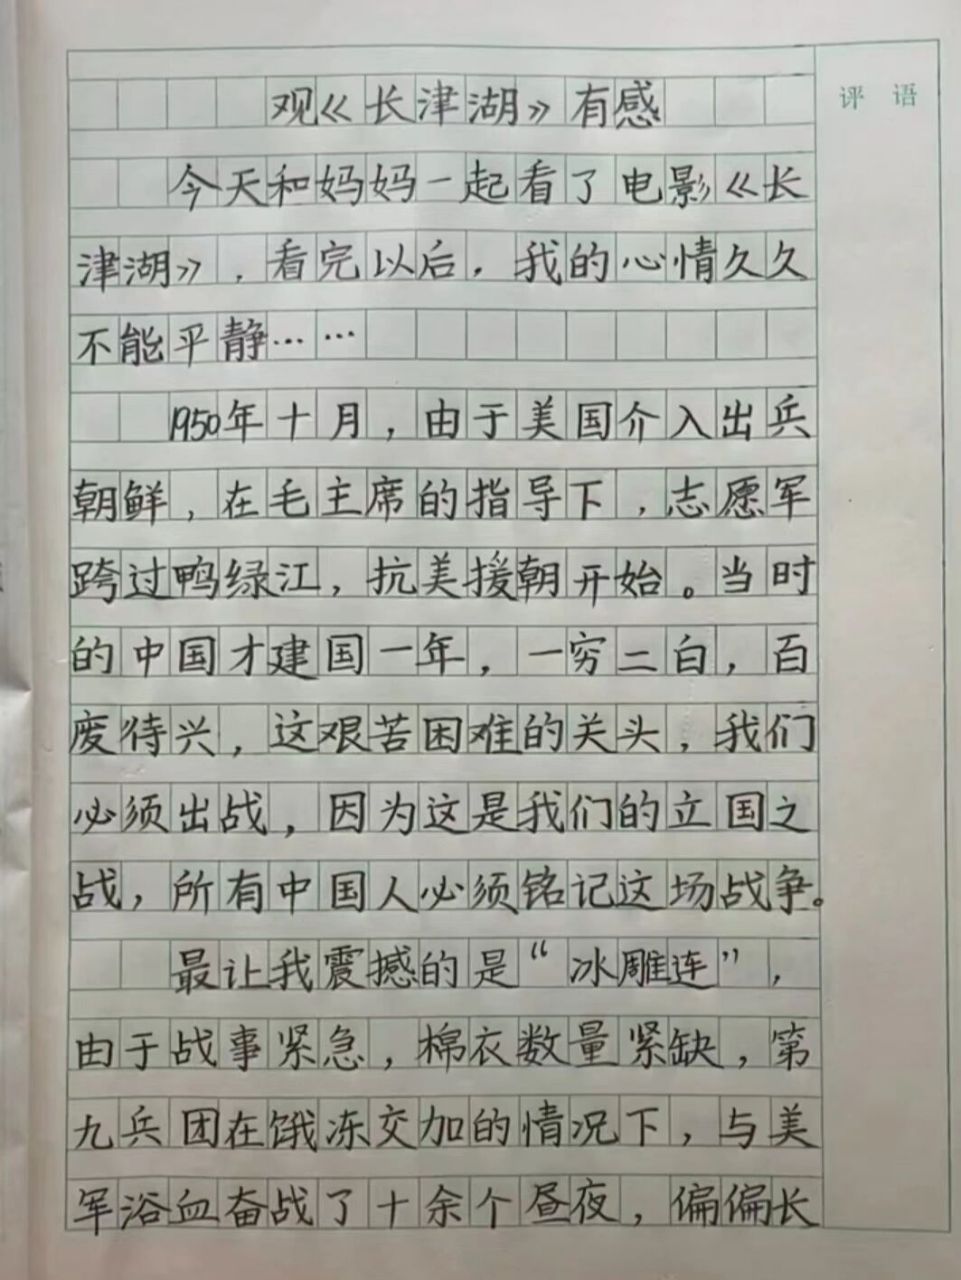 观《长津湖》有感
评 语
今天和妈妈一起看了电影《长
津湖》，看完以后，我的心情久久
不能平静……
1950年十月，由于美国介入出兵
朝鲜，在毛主席的指导下，志愿军
跨过鸭绿江，抗美援朝开始。当时
的中国才建国一年，一穷二白，百
废待兴，这艰苦困难的关头，我们
必须出战，因为这是我们的立国之
战，所有中国人必须铭记这场战争。
最让我震撼的是“冰雕连”，
由于战事紧急，棉衣数量紧缺，第
九兵团在饿冻交加的情况下，与美
军浴血奋战了十余个昼夜，偏偏长